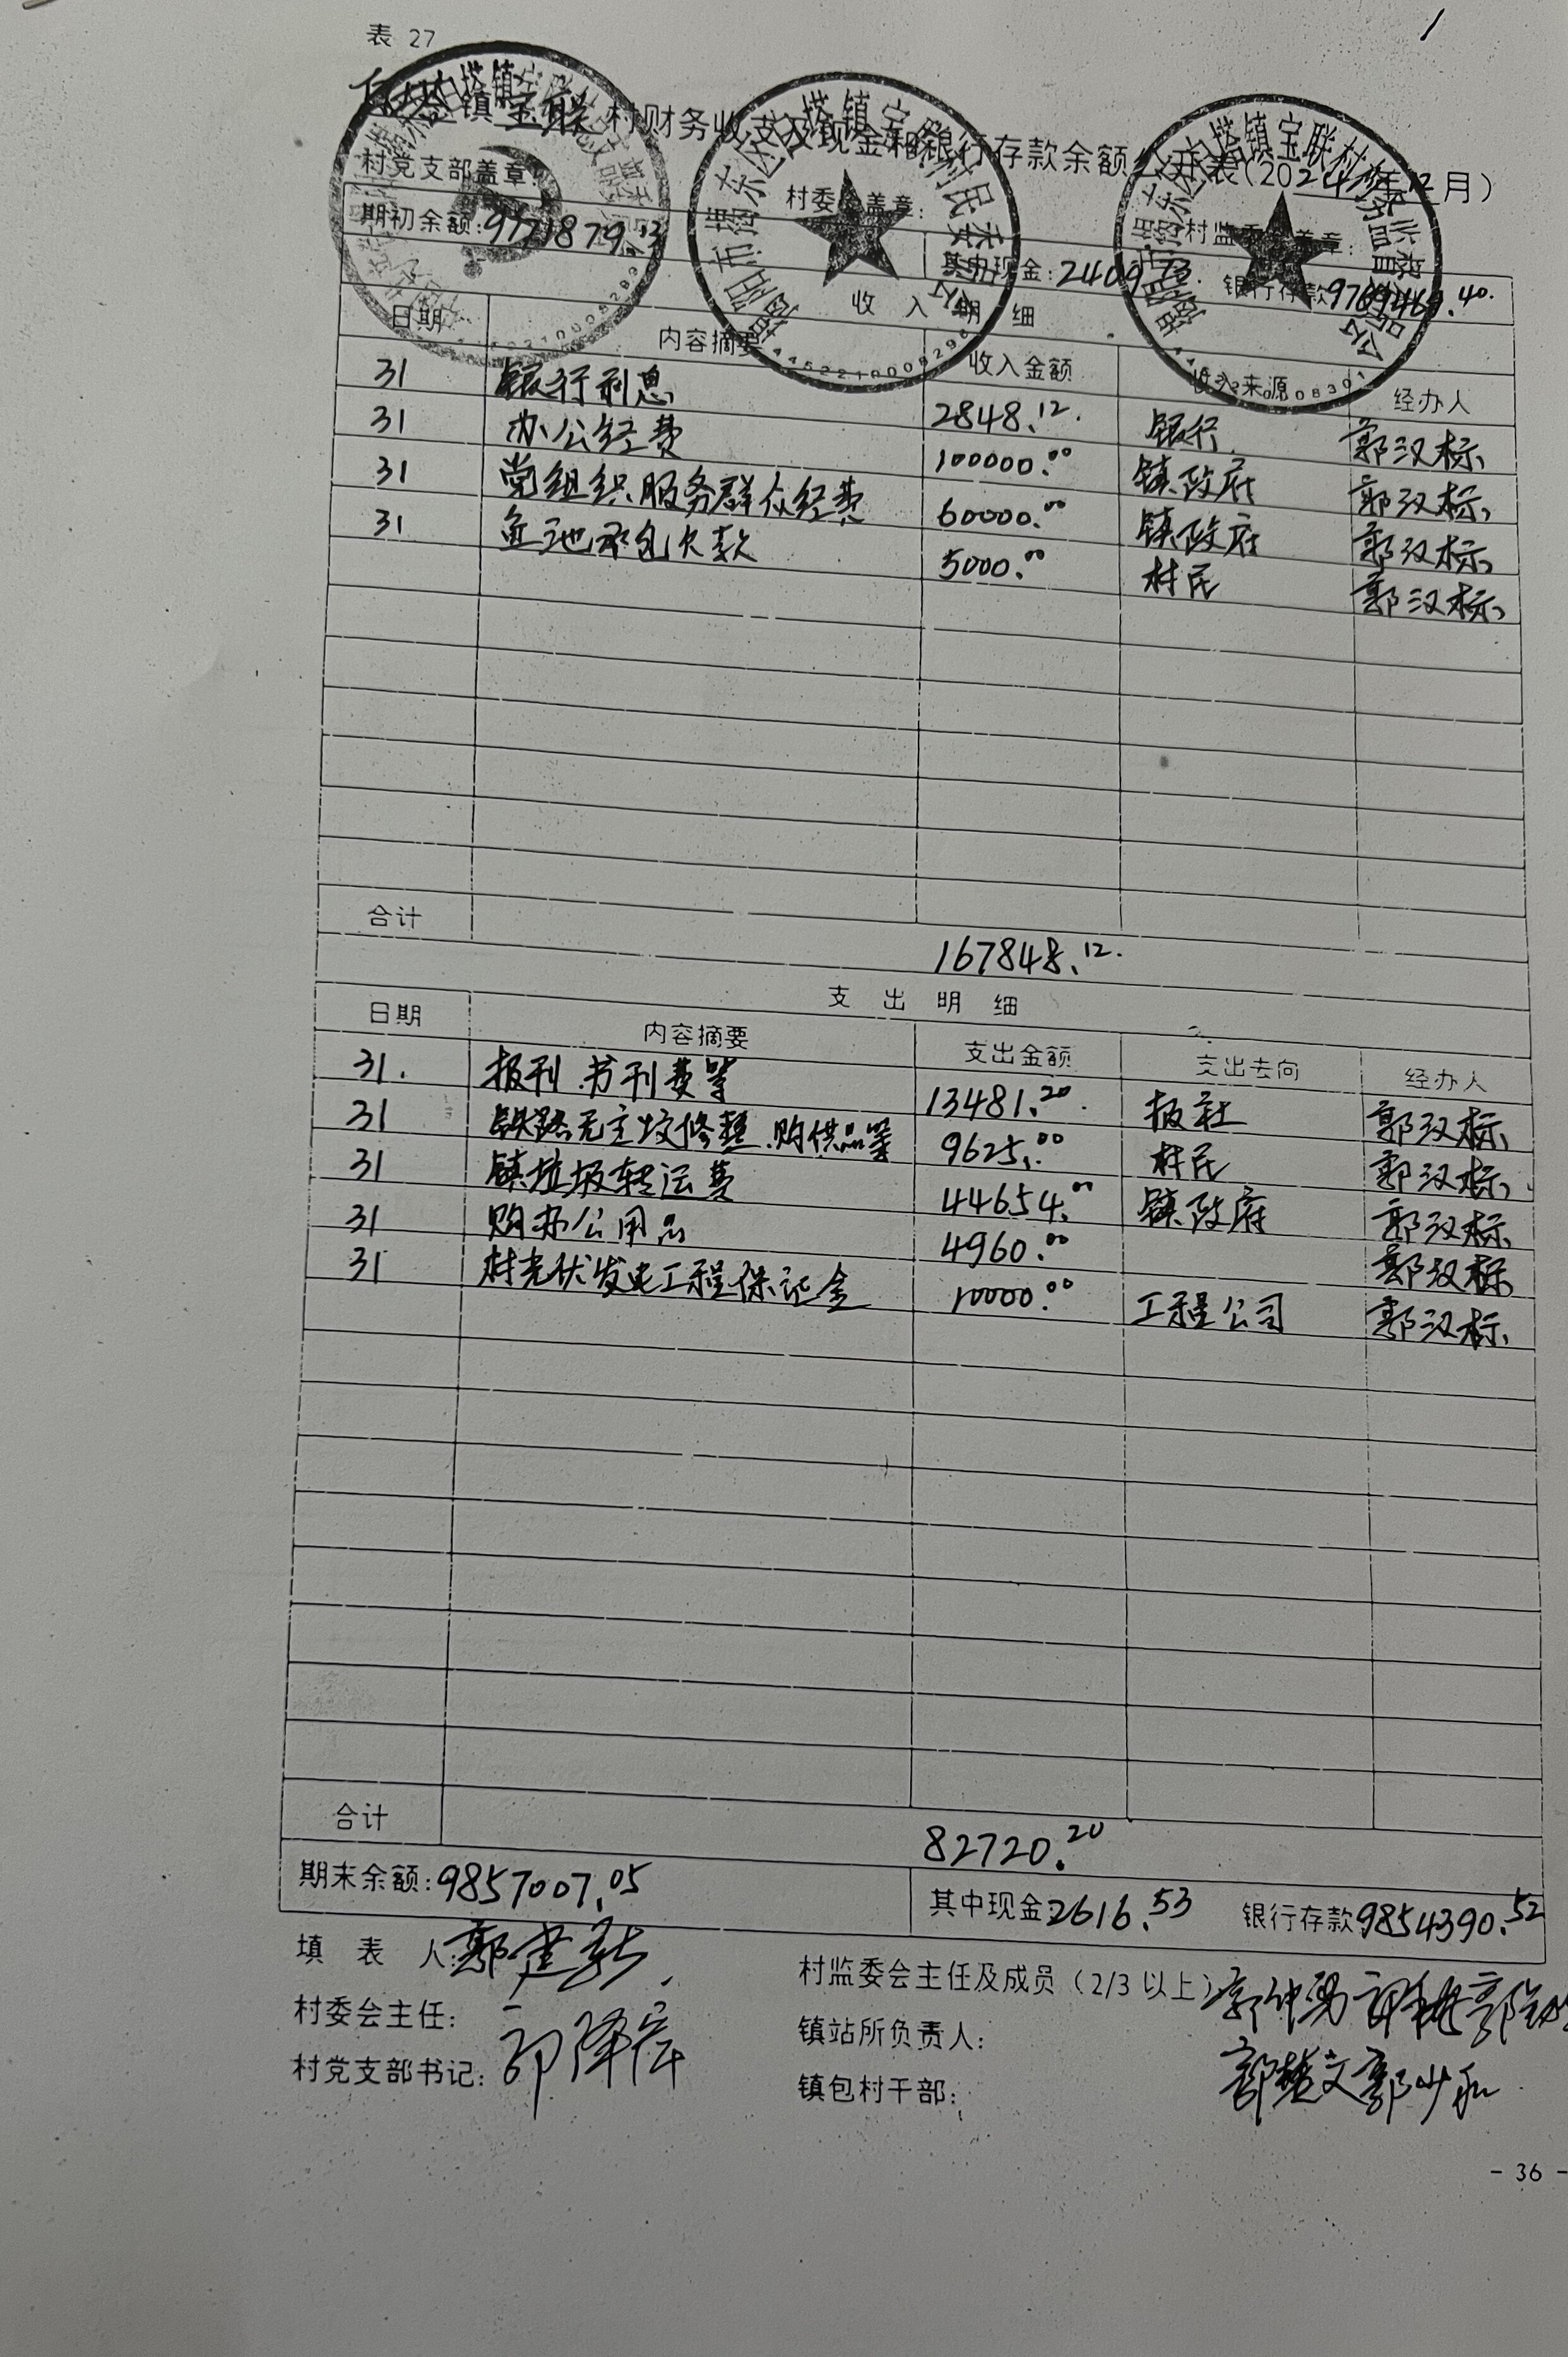 1
表 27
白塔镇宝联村财务收支及现金和银行存款余额公开表(2024年12月)
村党支部盖章: 村委会盖章: 村监委会盖章:
期初余额:9771879.13 其中现金:2409.73. 银行存款9769469.40.
收 入 明 细
日期 内容摘要 收入金额 收入来源 经办人
31 银行利息 2848.12. 银行 郭汉标
31 办公经费 100000.00 镇政府 郭汉标
31 党组织服务群众经费 60000.00 镇政府 郭汉标
31 鱼池承包欠款 5000.00 村民 郭汉标
合计 167848.12.
支 出 明 细
日期 内容摘要 支出金额 支出去向 经办人
31. 报刊.书刊费等 13481.20. 报社 郭汉标
31 铁路无主坟修整.购供品等 9625.00 村民 郭汉标
31 镇垃圾转运费 44654.00 镇政府 郭汉标
31 购办公用品 4960.00 郭汉标
31 村光伏发电工程保证金 10000.00 工程公司 郭汉标
合计 82720.20
期末余额:9857007.05 其中现金2616.53 银行存款9854390.52
填 表 人: 村监委会主任及成员(2/3 以上)
村委会主任: 镇站所负责人:
村党支部书记: 镇包村干部:
- 36 -